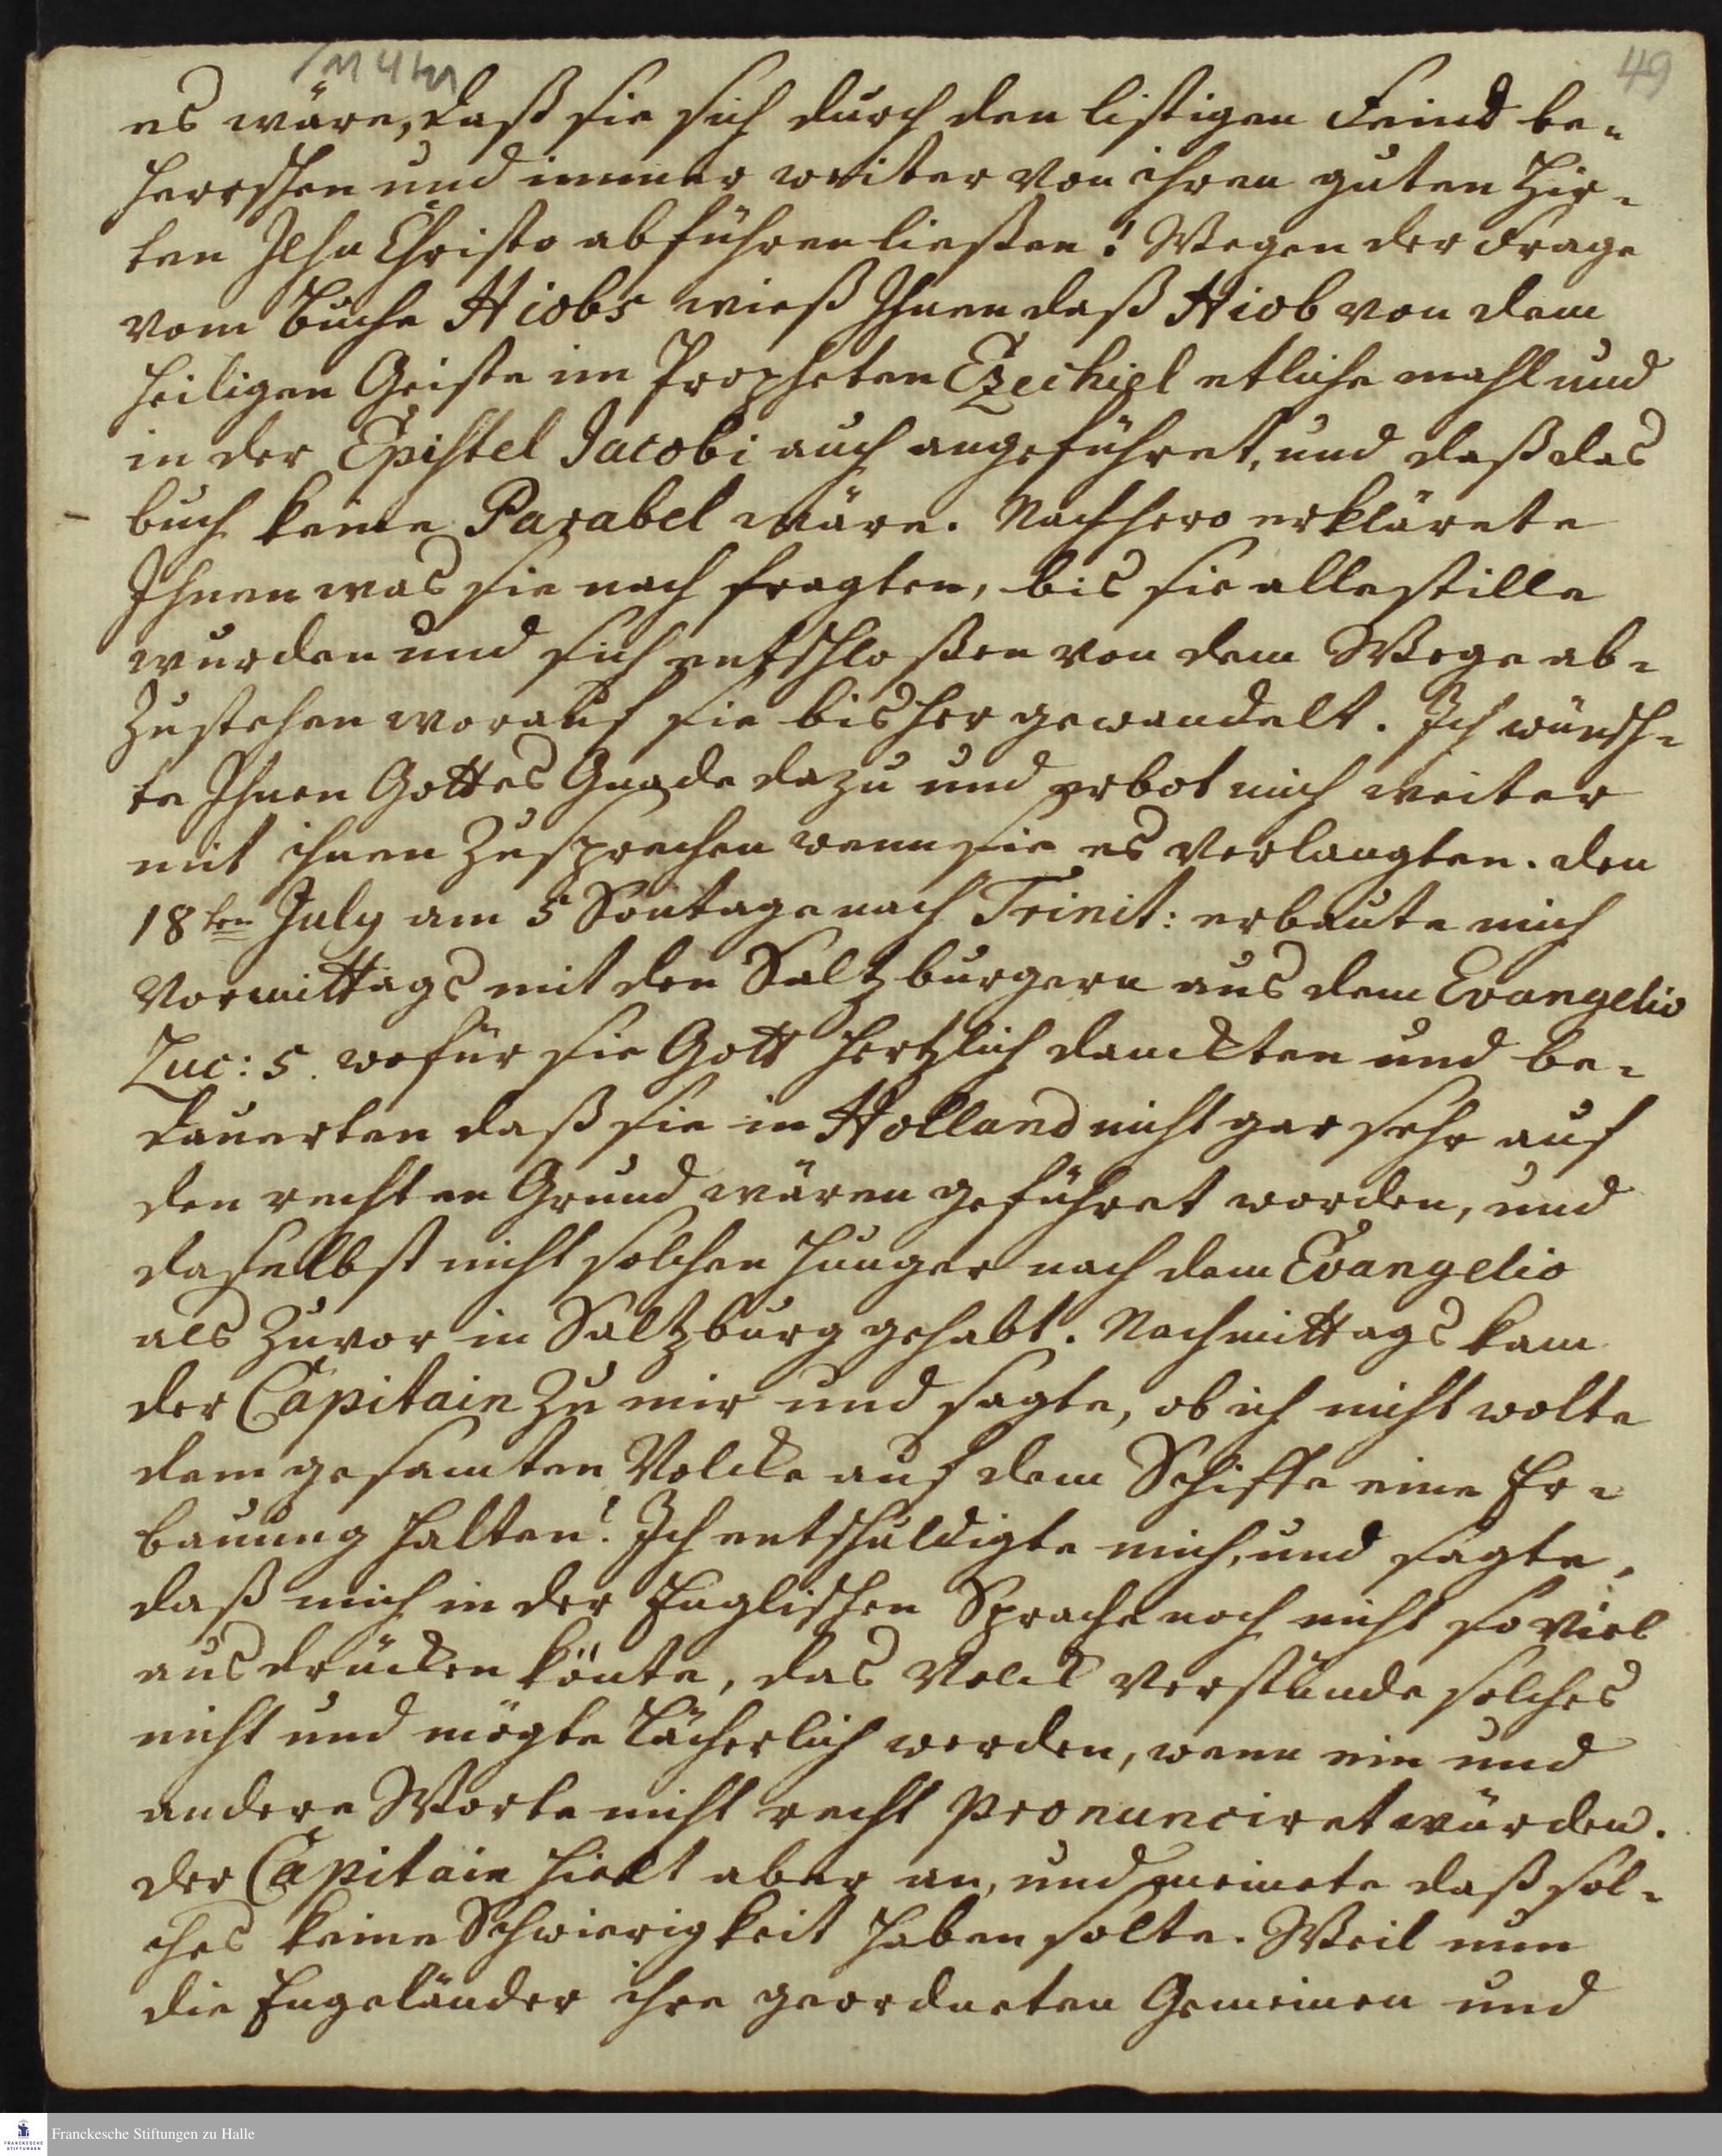 49
es wäre, daß sie sich durch den listigen Feind be-
herrschen und immer weiter von ihren guten Hir-
ten Jesu Christo abführen ließen! Wegen der Frage
vom Buche Hiobs wieß Ihnen daß Hiob von dem
heiligen Geiste im Propheten Ezechiel etliche mahl und
in der Epistel Jacobi auch angeführet, und daß das
buch keine Parabel wäre. Nachhero erklärete
Ihnen was sie nach fragten, bis sie alle stille
wurden und sich entschloßen von dem Wege ab-
zustehen worauf sie bisher gewandelt. Ich wünsch-
te Ihnen Gottes Gnade dazu und erbot mich weiter
mit ihnen zu sprechen wenn sie es verlangten. den
18ten July am 5 Sontage nach Trinit: erbaute mich
Vormittags mit den Saltzburgern aus dem Evangelio
Luc: 5. wofür sie Gott hertzlich danckten und be-
dauerten daß sie in Holland nicht gar sehr auf
den rechten Grund wären geführet worden, und
daselbst nicht solchen Hunger nach dem Evangelio
als zuvor in Saltzburg gehabt. Nachmittags kam
der Capitain zu mir und sagte, ob ich nicht wolte
dem gesamten Volcke auf dem Schiffe eine Er-
bauung halten? Ich entschuldigte mich, und sagte,
daß mich in der Englischen Sprache noch nicht so viel
ausdrücken könte, das Volck verstünde solches
nicht und mögte lächerlich werden, wenn ein und
andere Worte nicht recht pronunciret würden.
der Capitain hielt aber an, und meinete daß sol-
ches keine Schwierigkeit haben solte. Weil nun
die Engeländer ihre geordneten Gemeinen und
Franckesche Stiftungen zu Halle